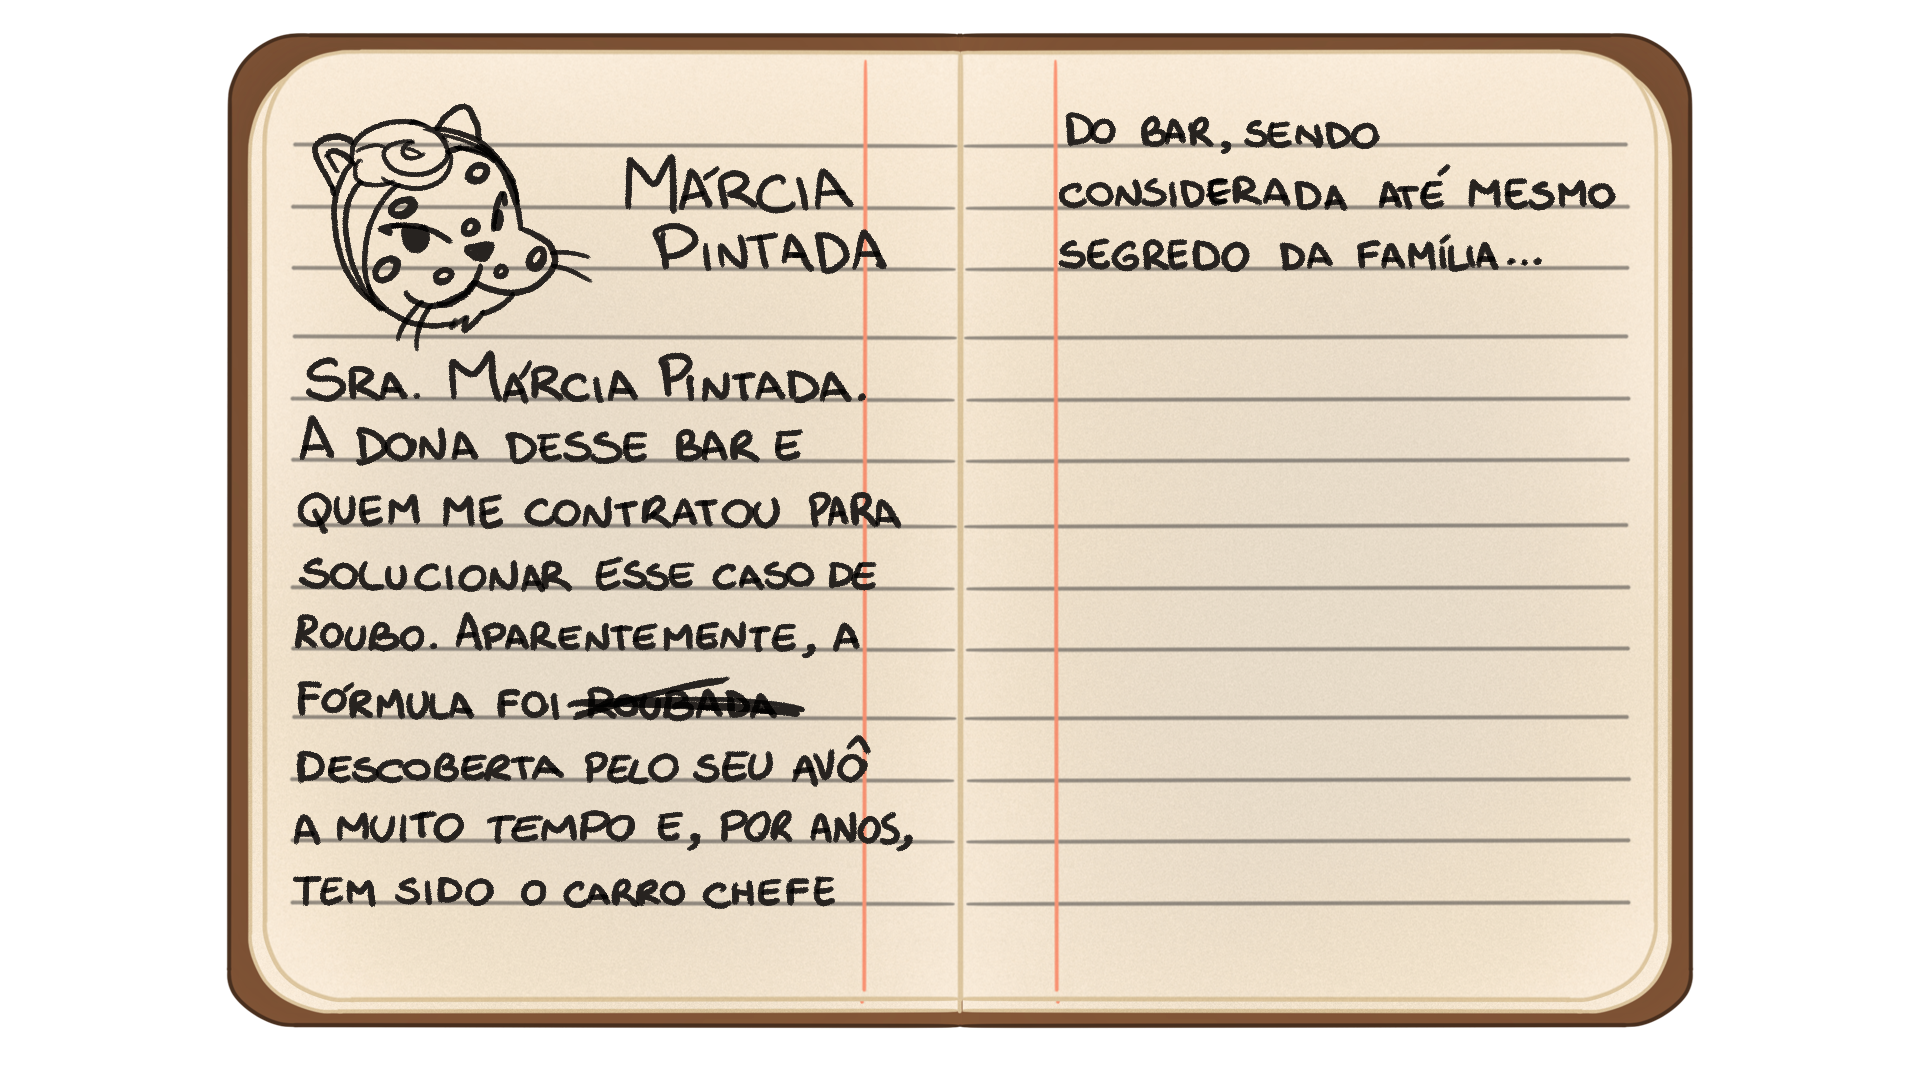 MÁRCIA
PINTADA
SRA. MÁRCIA PINTADA.
A DONA DESSE BAR E
QUEM ME CONTRATOU PARA
SOLUCIONAR ESSE CASO DE
ROUBO. APARENTEMENTE, A
FÓRMULA FOI ROUBADA
DESCOBERTA PELO SEU AVÔ
A MUITO TEMPO E, POR ANOS,
TEM SIDO O CARRO CHEFE
DO BAR, SENDO
CONSIDERADA ATÉ MESMO
SEGREDO DA FAMÍLIA...